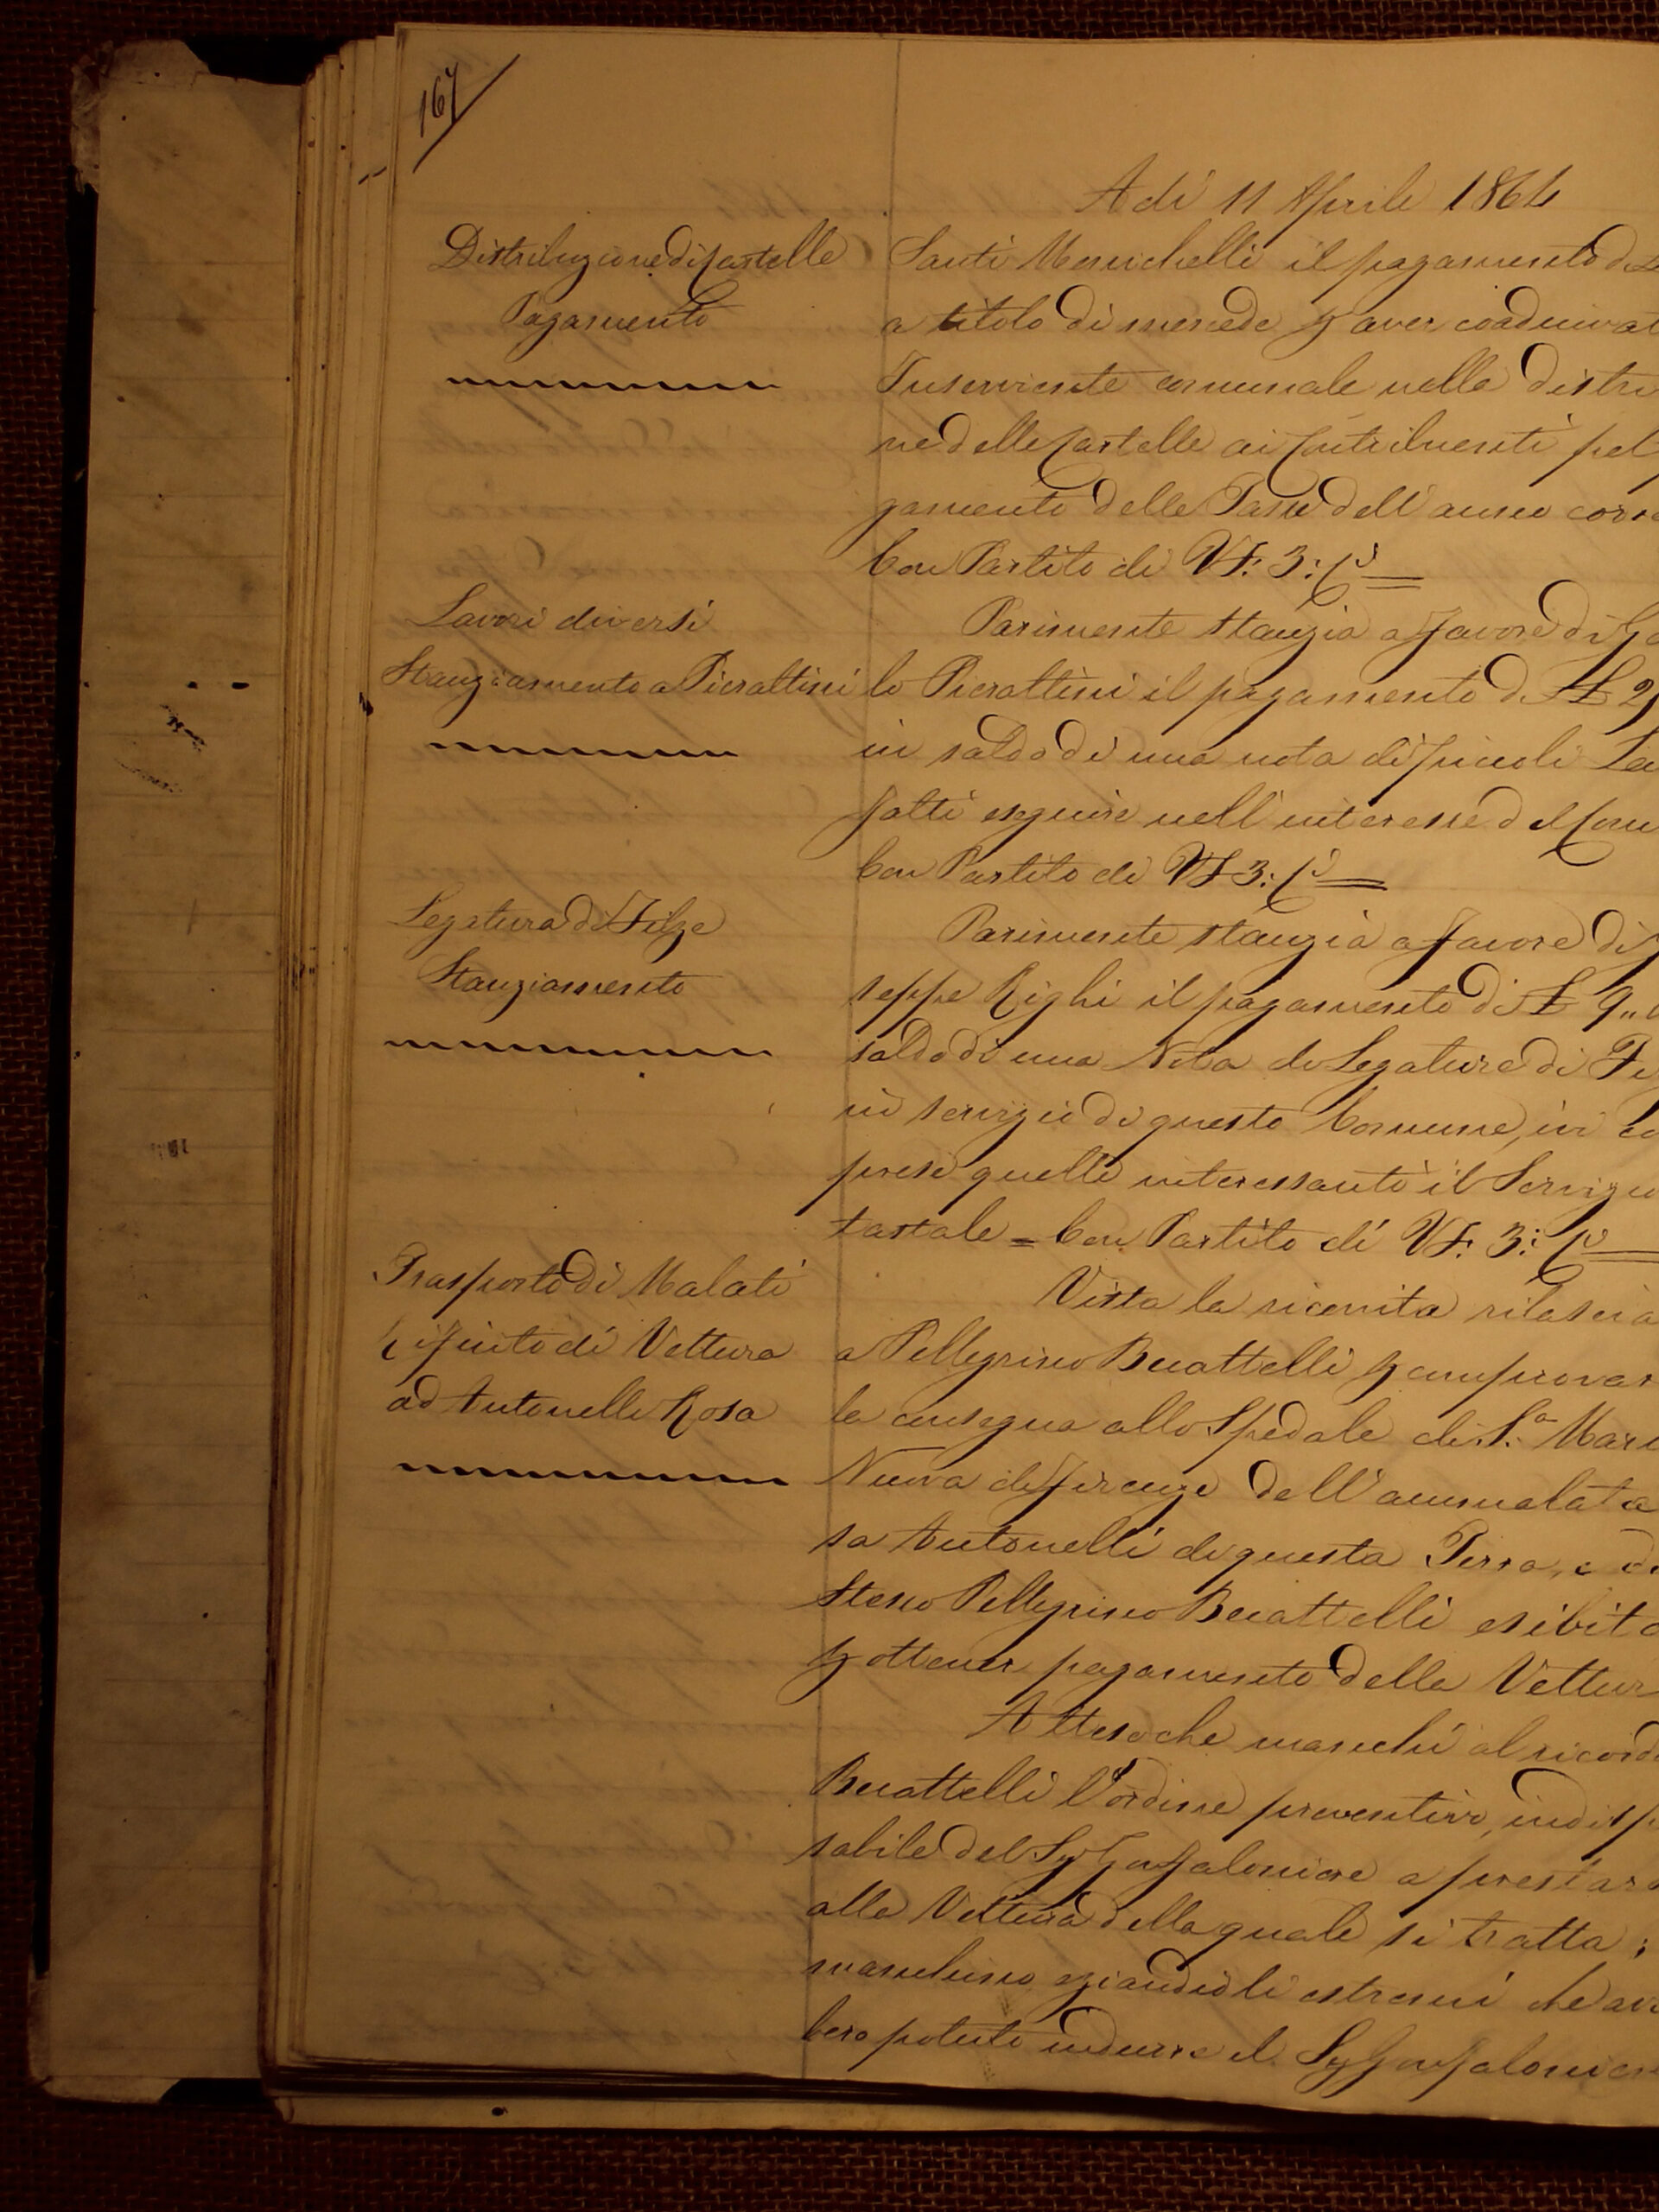 167
Adì 11 Aprile 1864
Distribuzione di Cartelle
Pagamento
Santi Menichelli il pagamento di
a titolo di mercede p aver coadiuvat
Inserviente comunale nella distri
ne delle Cartelle ai Contribuenti pel
gamento delle Tasse dell'anno corr
Con Partito di VF: 3: C
Lavori diversi
Stanziamento a Pierattini
Parimente stanzia a favore di
lo Pierattini il pagamento di £ 2
in saldo di una nota di piccoli La
fatti eseguire nell'interesse del Com
Con Partito di VF 3: C
Legatura di Filze
Stanziamento
Parimente stanzia a favore di
seppe Righi il pagamento di £ 9 "
saldo di una Nota di Legature di Fi
in servizio di questo Comune, ivi co
prese quelle interessanti il Servizio
tastale = Con Partito di VF: 3: C
Trasporto di Malati
Rifiuto di Vettura
ad Antonelli Rosa
Vista la ricevuta rilascia
a Pellegrino Bucattelli p comprovar
la consegna allo Spedale di S.a Mari
Nuova di Firenze dell'ammalata
sa Antonelli di questa Terra, e d
stesso Pellegrino Bucattelli esibit
p ottener pagamento della Vettur
Attesoché manchi al ricord
Bucattelli l'ordine preventivo, indisp
sabile del Sig Gonfaloniere a prestar
alla Vettura della quale si tratta;
manchino eziandio li estremi che av
bero potuto indurre il Sig Gonfalonier